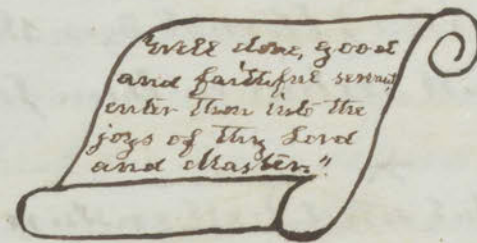 "Well done, good
and faithful servant,
enter thou into the
joys of thy Lord
and Master."